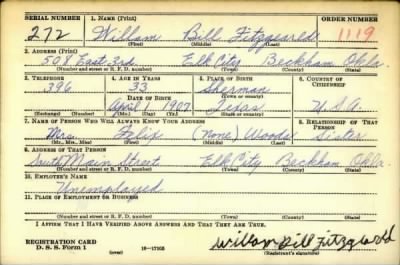 SERIAL NUMBER 1. NAME (Print) ORDER NUMBER
272 William Bill Fitzgearld 1119
(First) (Middle) (Last)
2. ADDRESS (Print)
508 East 3rd Elk City Beckham Okla.
(Number and street or R. F. D. number) (Town) (County) (State)
3. TELEPHONE 4. AGE IN YEARS 5. PLACE OF BIRTH 6. COUNTRY OF CITIZENSHIP
396 33 Sherman
DATE OF BIRTH (Town or county)
April 1 1907 Texas U.S.A.
(Exchange) (Number) (Mo.) (Day) (Yr.) (State or country)
7. NAME OF PERSON WHO WILL ALWAYS KNOW YOUR ADDRESS 8. RELATIONSHIP OF THAT PERSON
Mrs. Felix (None) Woods Sister
(Mr., Mrs., Miss) (First) (Middle) (Last)
9. ADDRESS OF THAT PERSON
South Main Street Elk City Beckham Okla.
(Number and street or R. F. D. number) (Town) (County) (State)
10. EMPLOYER'S NAME
Unemployed
11. PLACE OF EMPLOYMENT OR BUSINESS
(Number and street or R. F. D. number) (Town) (County) (State)
I AFFIRM THAT I HAVE VERIFIED ABOVE ANSWERS AND THAT THEY ARE TRUE.
REGISTRATION CARD
D. S. S. Form 1 (over) 16—17105 William Bill Fitzgearld
(Registrant's signature)